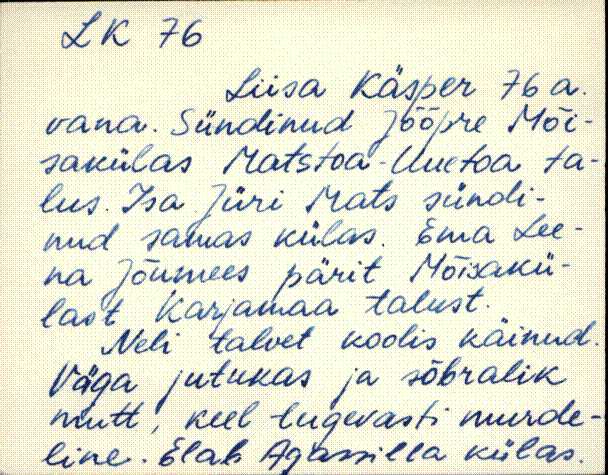 LK 76
Liisa Käsper 76 a.
vana. Sündinud Jõõpre Mõi-
sakülas Matstoa-Uuetoa ta-
lus. Isa Jüri Mats sündi-
nud samas külas. Ema Lee-
na Jõumees pärit Mõisakü-
last Karjamaa talust.
Neli talvet koolis käinud.
Väga jutukas ja sõbralik
mutt, keel tugevasti murde-
line. Elab Agassilla külas.